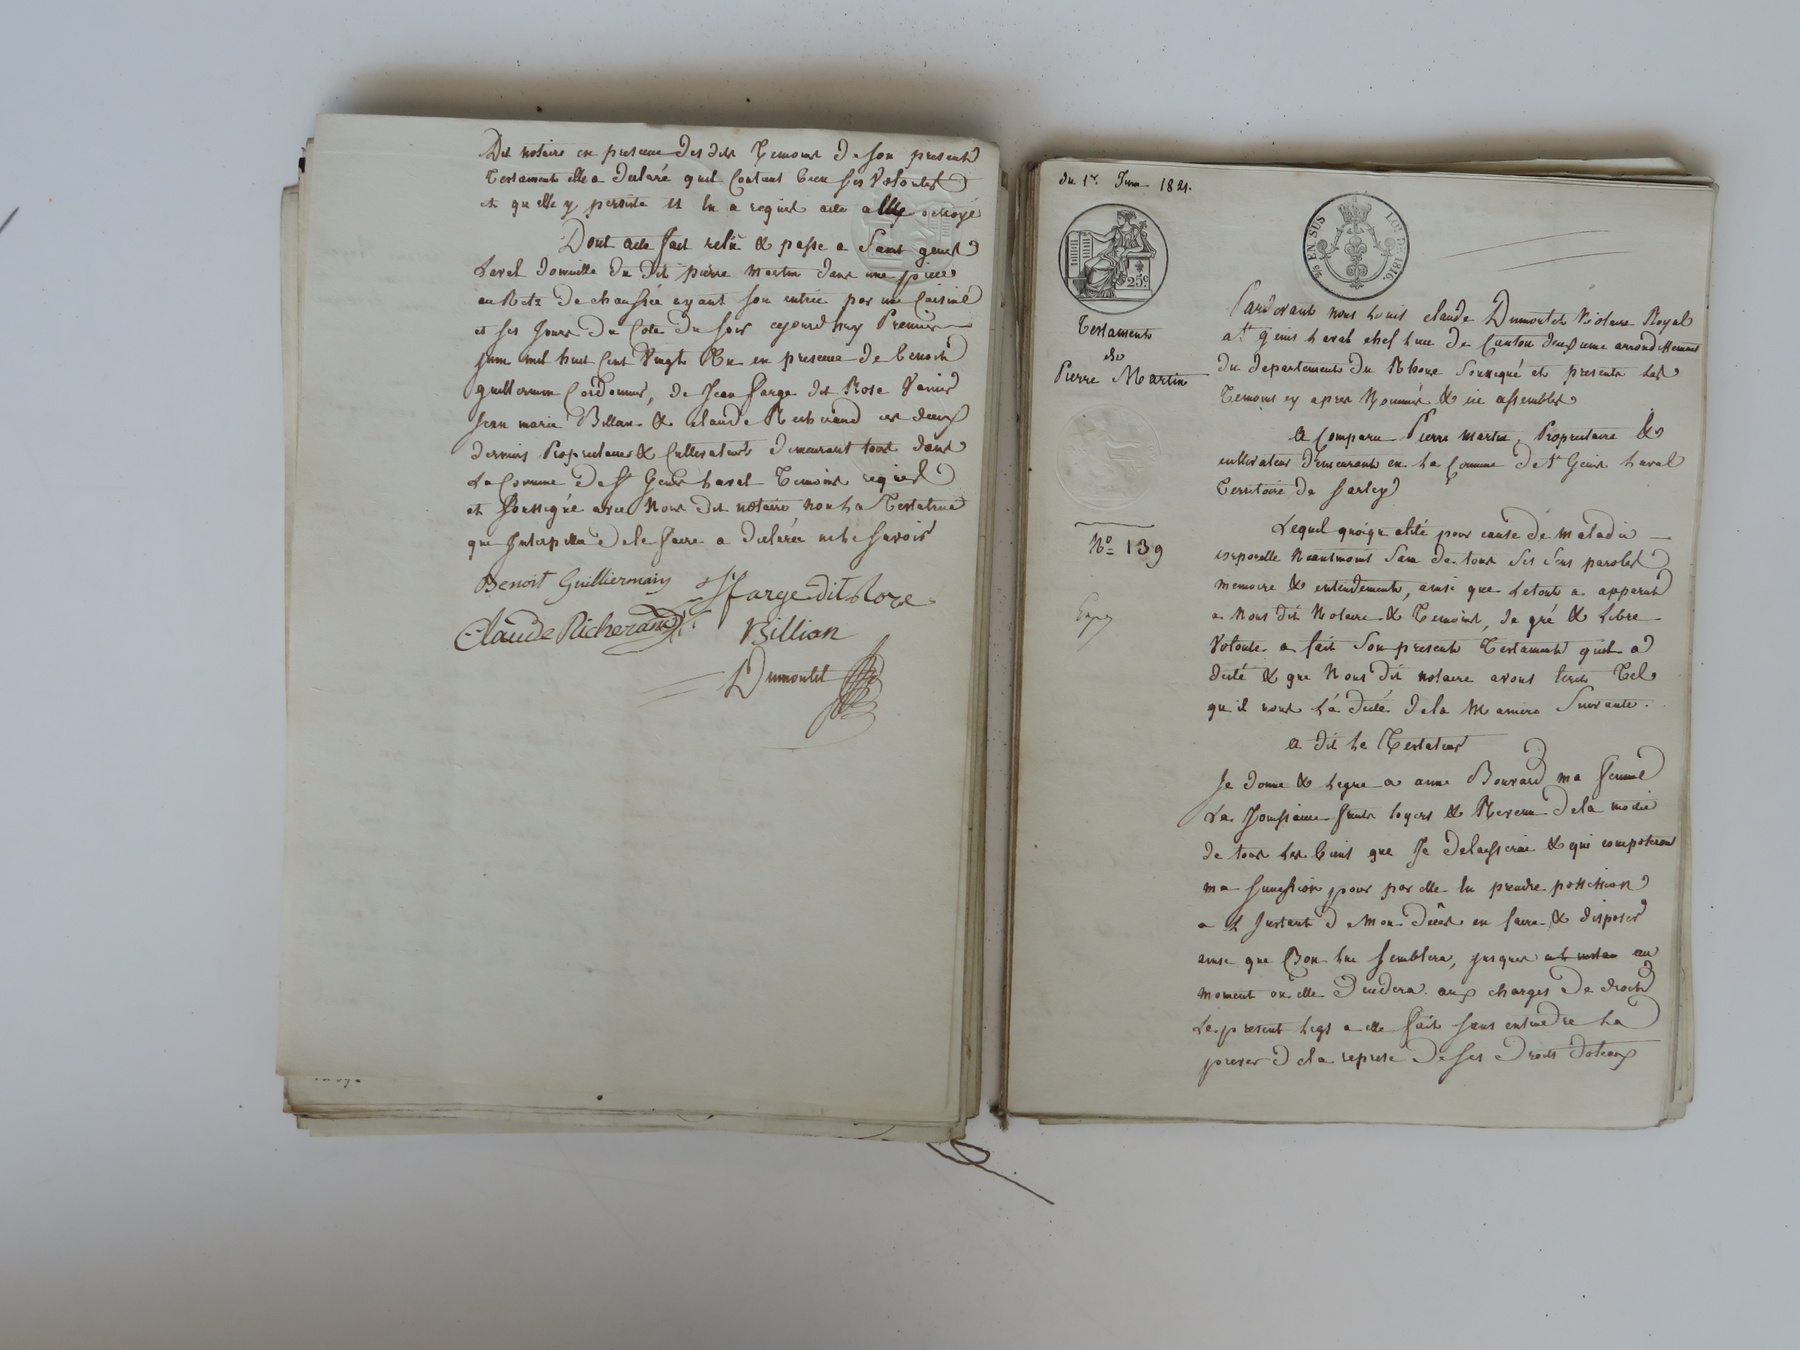 Dit notaire en presence des dits Temoins de son present
Testament elle a declaré quil Contient bien ses Volontés
et qu'elle y persiste et en a requis acte a elle octroyé
Dont acte fait relu & passé a Saint genis
Laval domicille du dit pierre Martin dans une piece
au Retz de chaussée ayant son entrée par une Cuisine
et ses Jours du Cote du Soir cejourd'huy Premier
juin mil huit Cent Vingt Un en presence de benoit
guillermin Cordonnier, de Jean farge dit Rose
Jean marie Billian & claude Richerand ces deux
derniers Proprietaires & Cultivateurs demeurant tous dans
La Comune de St Genis Laval Temoins requis
et Soussigné avec Nous dit notaire non La Testatrice
que Interpellée de le faire a declarée ne le savoir
Benoit Guilliermain J farge dit Roze
Claude Richerand Billian
Dumontet
du 1er Juin 1821.
25c
25 EN SUS LOI DE 1816.
Testament
de
Pierre Martin
No 139
Pardevant nous Louis claude Dumontet Notaire Royal
a St genis Laval chef lieu de Canton deuxieme arrondissement
du departement du Rhone Soussigné et presents Les
Temoins cy apres Nommés & ici assemblés
A Comparu Pierre Martin, Proprietaire &
cultivateur demeurant en La Comune de St Genis Laval
Territoire de Sarley
Lequel quoique alité pour cause de maladie
corporelle Neantmoins Sain de tous ses sens parole
memoire & entendement, ainsi que Le tout a apparut
a Nous dit Notaire & Temoins, de gré & Libre
Volonté a fait Son present Testament quil a
dicté & que Nous dit notaire avons Ecrit Tel
qu'il nous L'a dicté de la Maniere Suivante.
A dit Le Testateur
Je donne & Legue a anne Bouvard ma femme
La Jouissance fruits loyers & Revenu de la moitié
de tous Les biens que Je delaisserai & qui composeront
ma Succession pour par elle en prendre possession
a L'Instant de Mon décès en faire & disposer
ainsi que Bon lui semblera, jusques a l'instan au
moment ou elle Decedera aux charges de droit
Le present Legs a elle fait sans entendre La
priver de la reprise de ses Droits dotaux